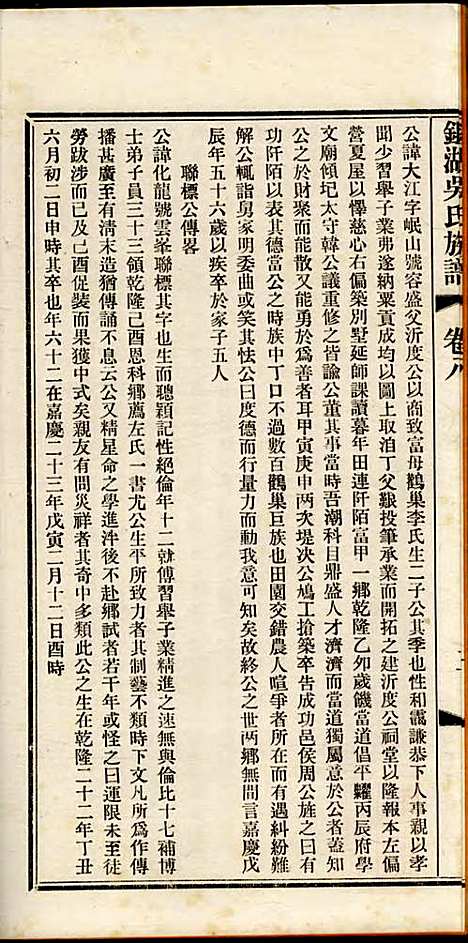 吳氏族譜 卷八
公諱大江字岷山號容盛父沂度公以商致富母鶴巢李氏生二子公其季也性和藹謙恭下人事親以孝
聞少習舉子業弗遂納粟貢成均以圖上取洎丁父艱投筆承業而開拓之建沂度公祠堂以隆報本左偏
營夏屋以懌慈心右偏築別墅延師課讀暮年田連阡陌富甲一鄉乾隆乙卯歲饑當道倡平糶丙辰府學
文廟傾圮太守韓公議重修之皆諭公董其事當時吾潮科目鼎盛人才濟濟而當道獨屬意於公者蓋知
公之於財聚而能散又能勇於為善者耳甲寅庚申兩次堤决公鳩工搶築卒告成功邑侯周公旌之曰有
功阡陌以表其德當公之時族中丁口不過數百鶴巢巨族也田園交錯農人喧爭者所在而有遇糾紛難
解公輒詣舅家明委曲或笑其怯公曰度德而行量力而動我意可知矣故終公之世兩鄉無間言嘉慶戊
辰年五十六歲以疾卒於家子五人
聯標公傳畧
公諱化龍號雲峯聯標其字也生而聰穎記性絕倫年十二就傅習舉子業精進之速無與倫比十七補博
士弟子員三十三領乾隆己酉恩科鄉薦左氏一書尤公生平所致力者其制藝不類時下文凡所為作傳
播甚廣至有清末造猶傳誦不息云公又精星命之學進泮後不赴鄉試者若干年或怪之曰運限未至徒
勞跋涉而已及己酉促裝而果獲中式矣親友有問災祥者其奇中多類此公之生在乾隆二十二年丁丑
六月初二日申時其卒也年六十二在嘉慶二十三年戊寅二月十二日酉時